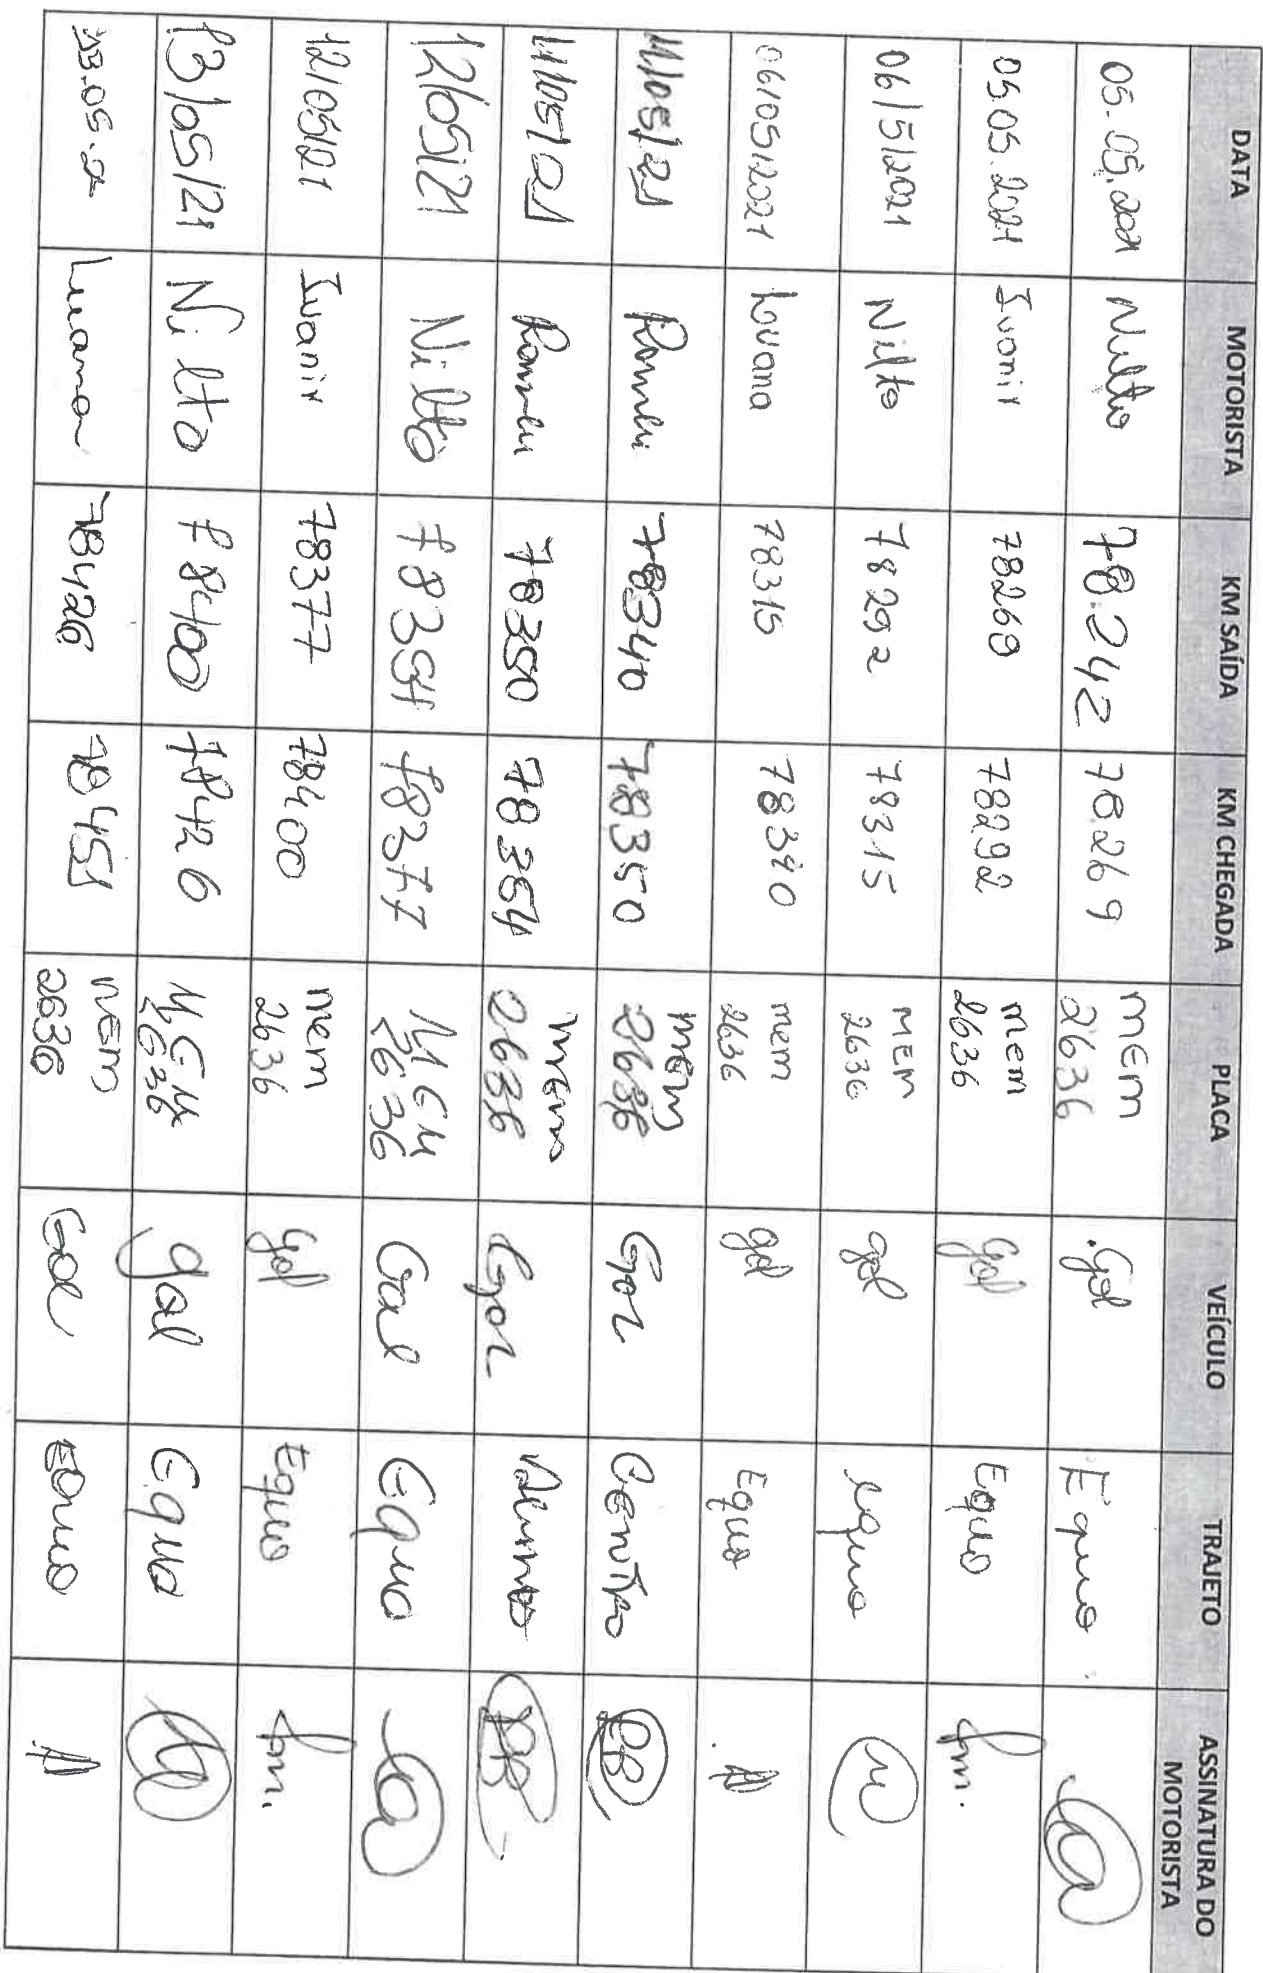 DATA MOTORISTA KM SAÍDA KM CHEGADA PLACA VEÍCULO TRAJETO ASSINATURA DO MOTORISTA
05.05.2021 Nilto 78.242 78269 MEM 2636 Gol Equo
05.05.2021 Ivanir 78269 78292 mem 2636 Gol Equo Jm.
06/5/2021 Nilto 78292 78315 MEM 2636 gol equo
06/05/2021 Lovana 78315 78340 mem 2636 gol Equo
11/05/21 Romeu 78340 78350 mem 2636 Gol Centro RB
11/05/21 Romeu 78350 78354 mem 2636 Gol RB
12/05/21 Nilto 78354 78377 MEM 2636 Gol Equo
12/05/21 Ivanir 78377 78400 mem 2636 Gol Equo Jm.
13/05/21 Nilto 78400 78426 MEM 2636 gol Equo
13.05.2 Luana 78426 78451 MEM 2636 Gol Equo